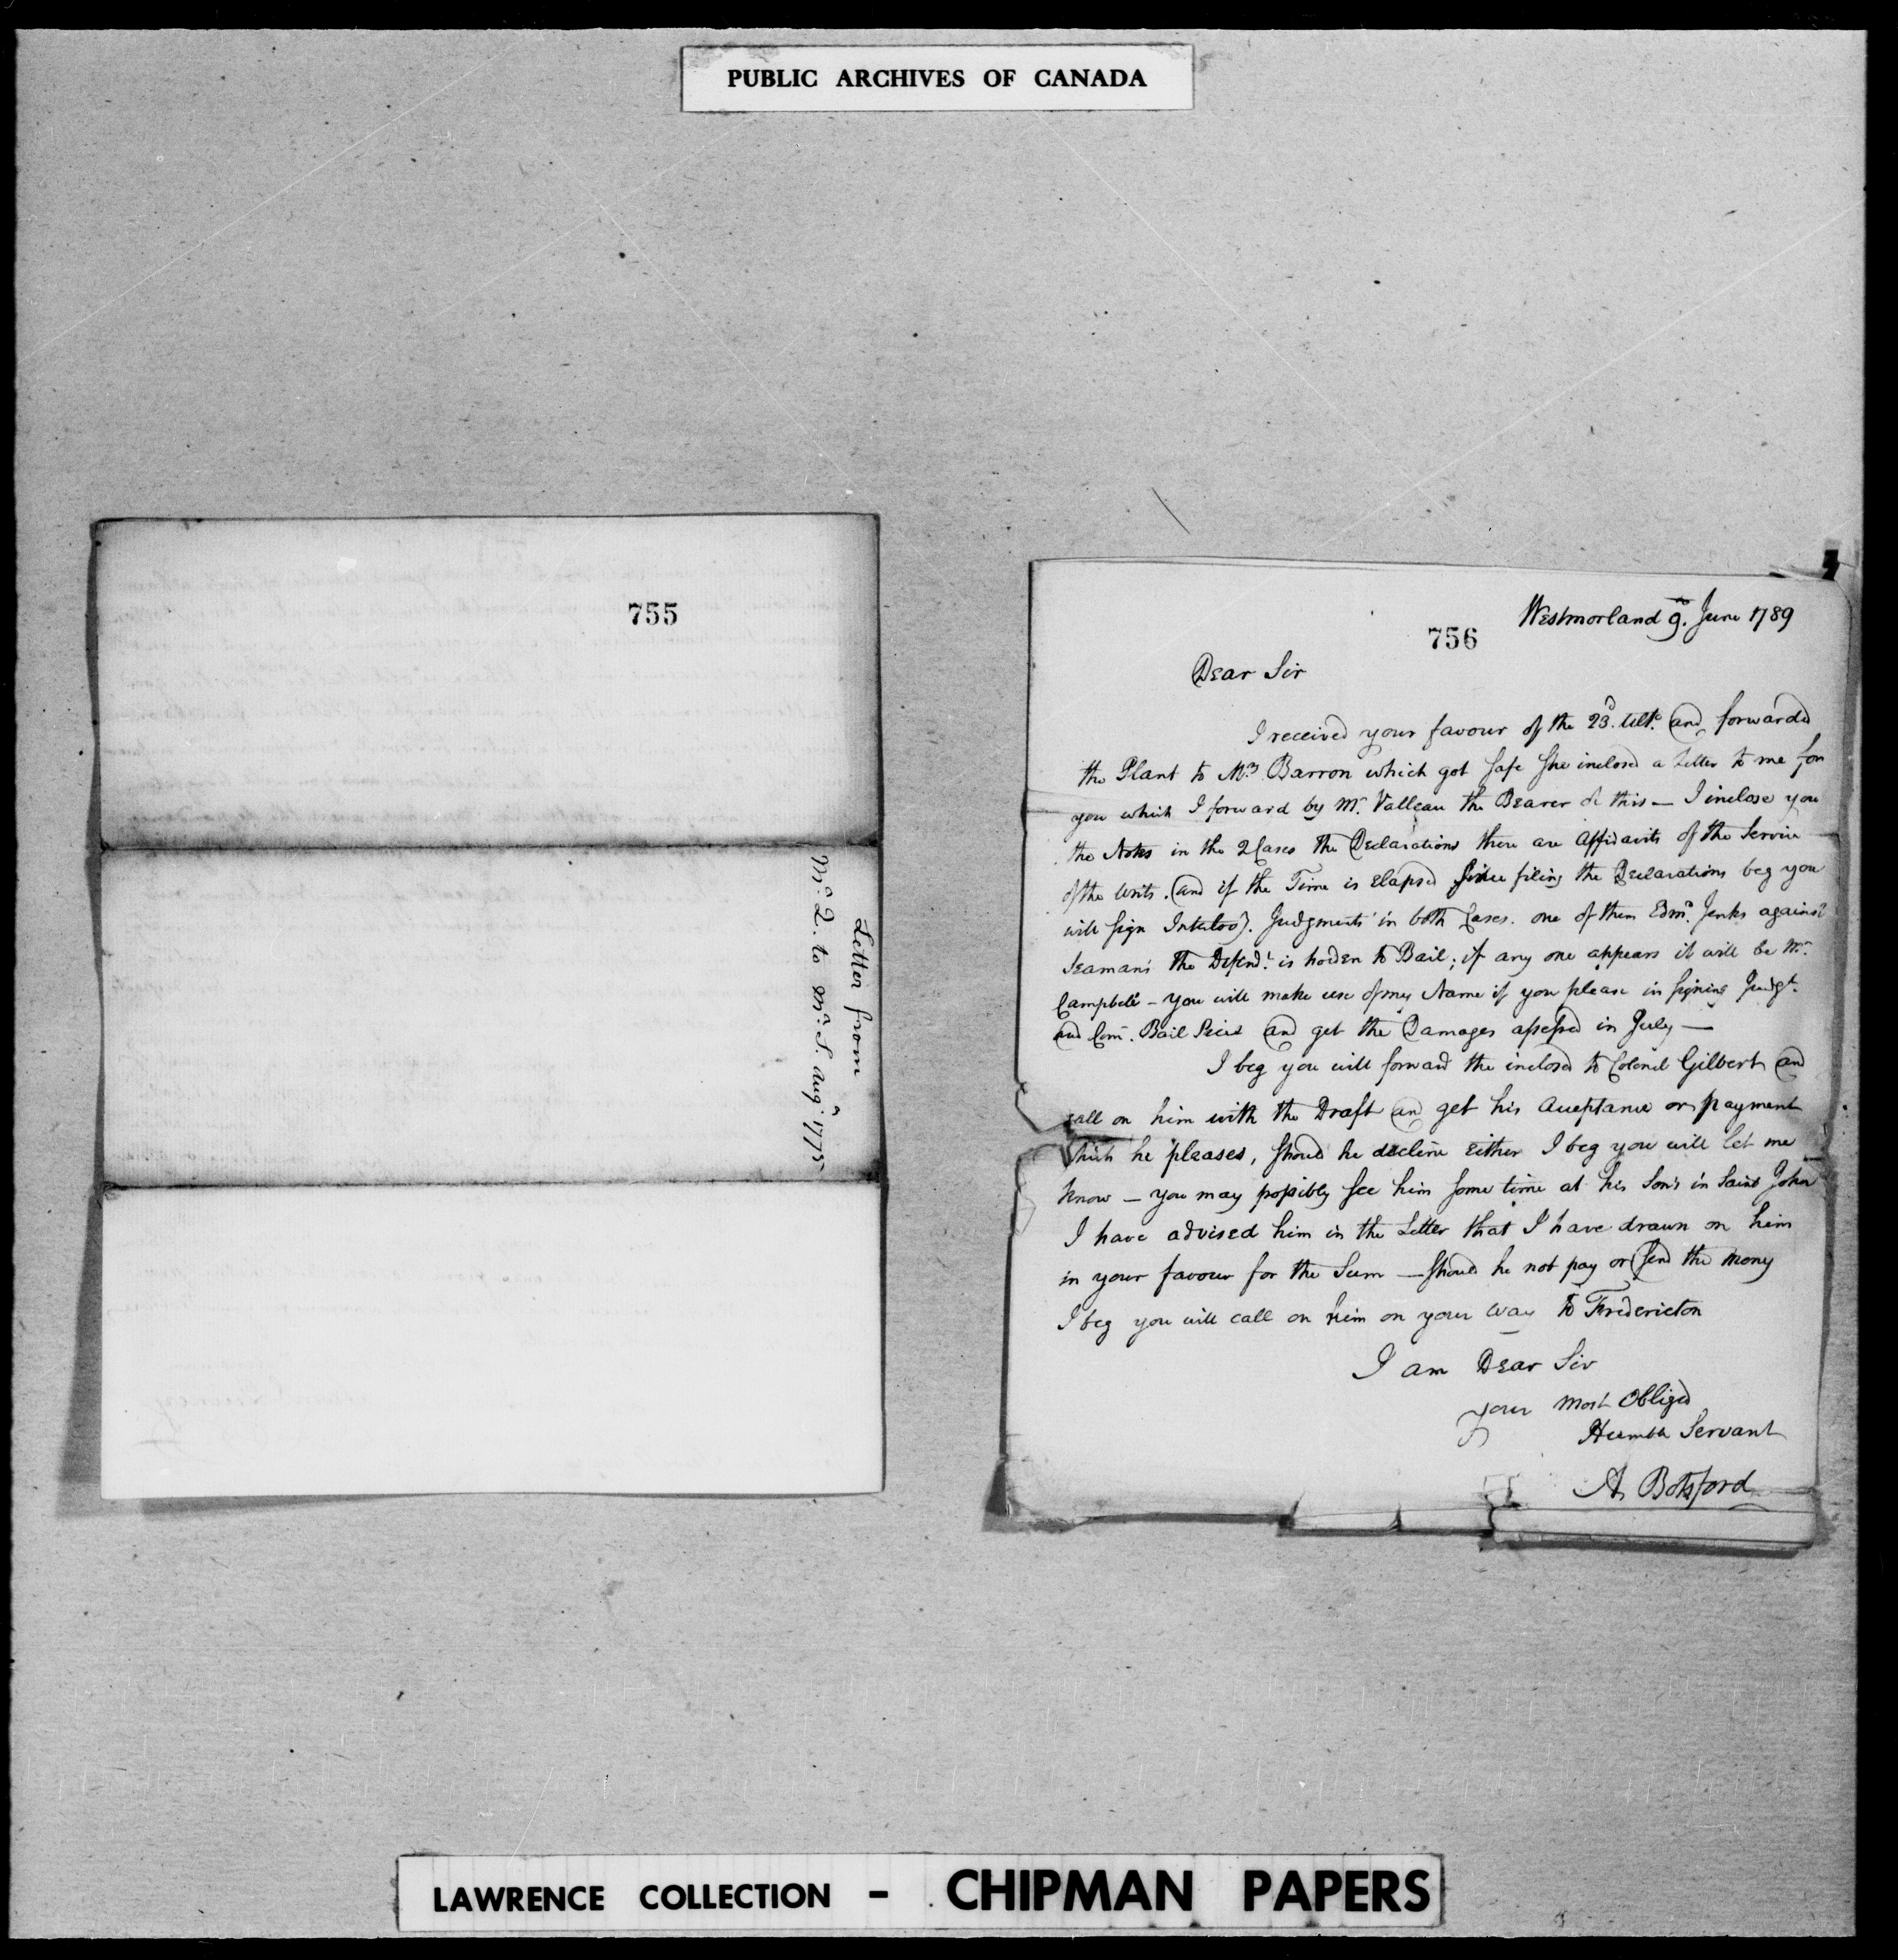 PUBLIC ARCHIVES OF CANADA
755
Letter from
Mr. Q. to Mr. S. Augn. 1775
756
Westmorland 9th. June 1789
Dear Sir
I received your favour of the 23d. Ulto. and forwarded
the Plant to Mrs. Barron which got safe She inclosed a Letter to me for
you which I forward by Mr. Valleau the Bearer of this — I inclose you
the Notes in the 2 Cases the Declarations there are Affidavits of the Service
of the Writs. and if the Time is Elapsed Since filing the Declarations beg you
will sign Interlooy. Judgments in both Cases. one of them Edmd. Jenks against
Seaman's the Defendt. is holden to Bail; if any one appears it will be Mr.
Campbell – you will make use of my Name if you please in signing Judgt.
and Com. Bail and get the Damages assessed in July —
I beg you will forward the inclosed to Colonel Gilbert and
call on him with the Draft and get his Acceptance or payment
which he pleases, should he decline Either I beg you will let me
know — you may possibly see him some time at his Son's in Saint John
I have advised him in the Letter that I have drawn on him
in your favour for the Sum — should he not pay or send the Mony
I beg you will call on him on your way to Fredericton
I am Dear Sir
your Most Obliged
Humble Servant
A Botsford
LAWRENCE COLLECTION - CHIPMAN PAPERS